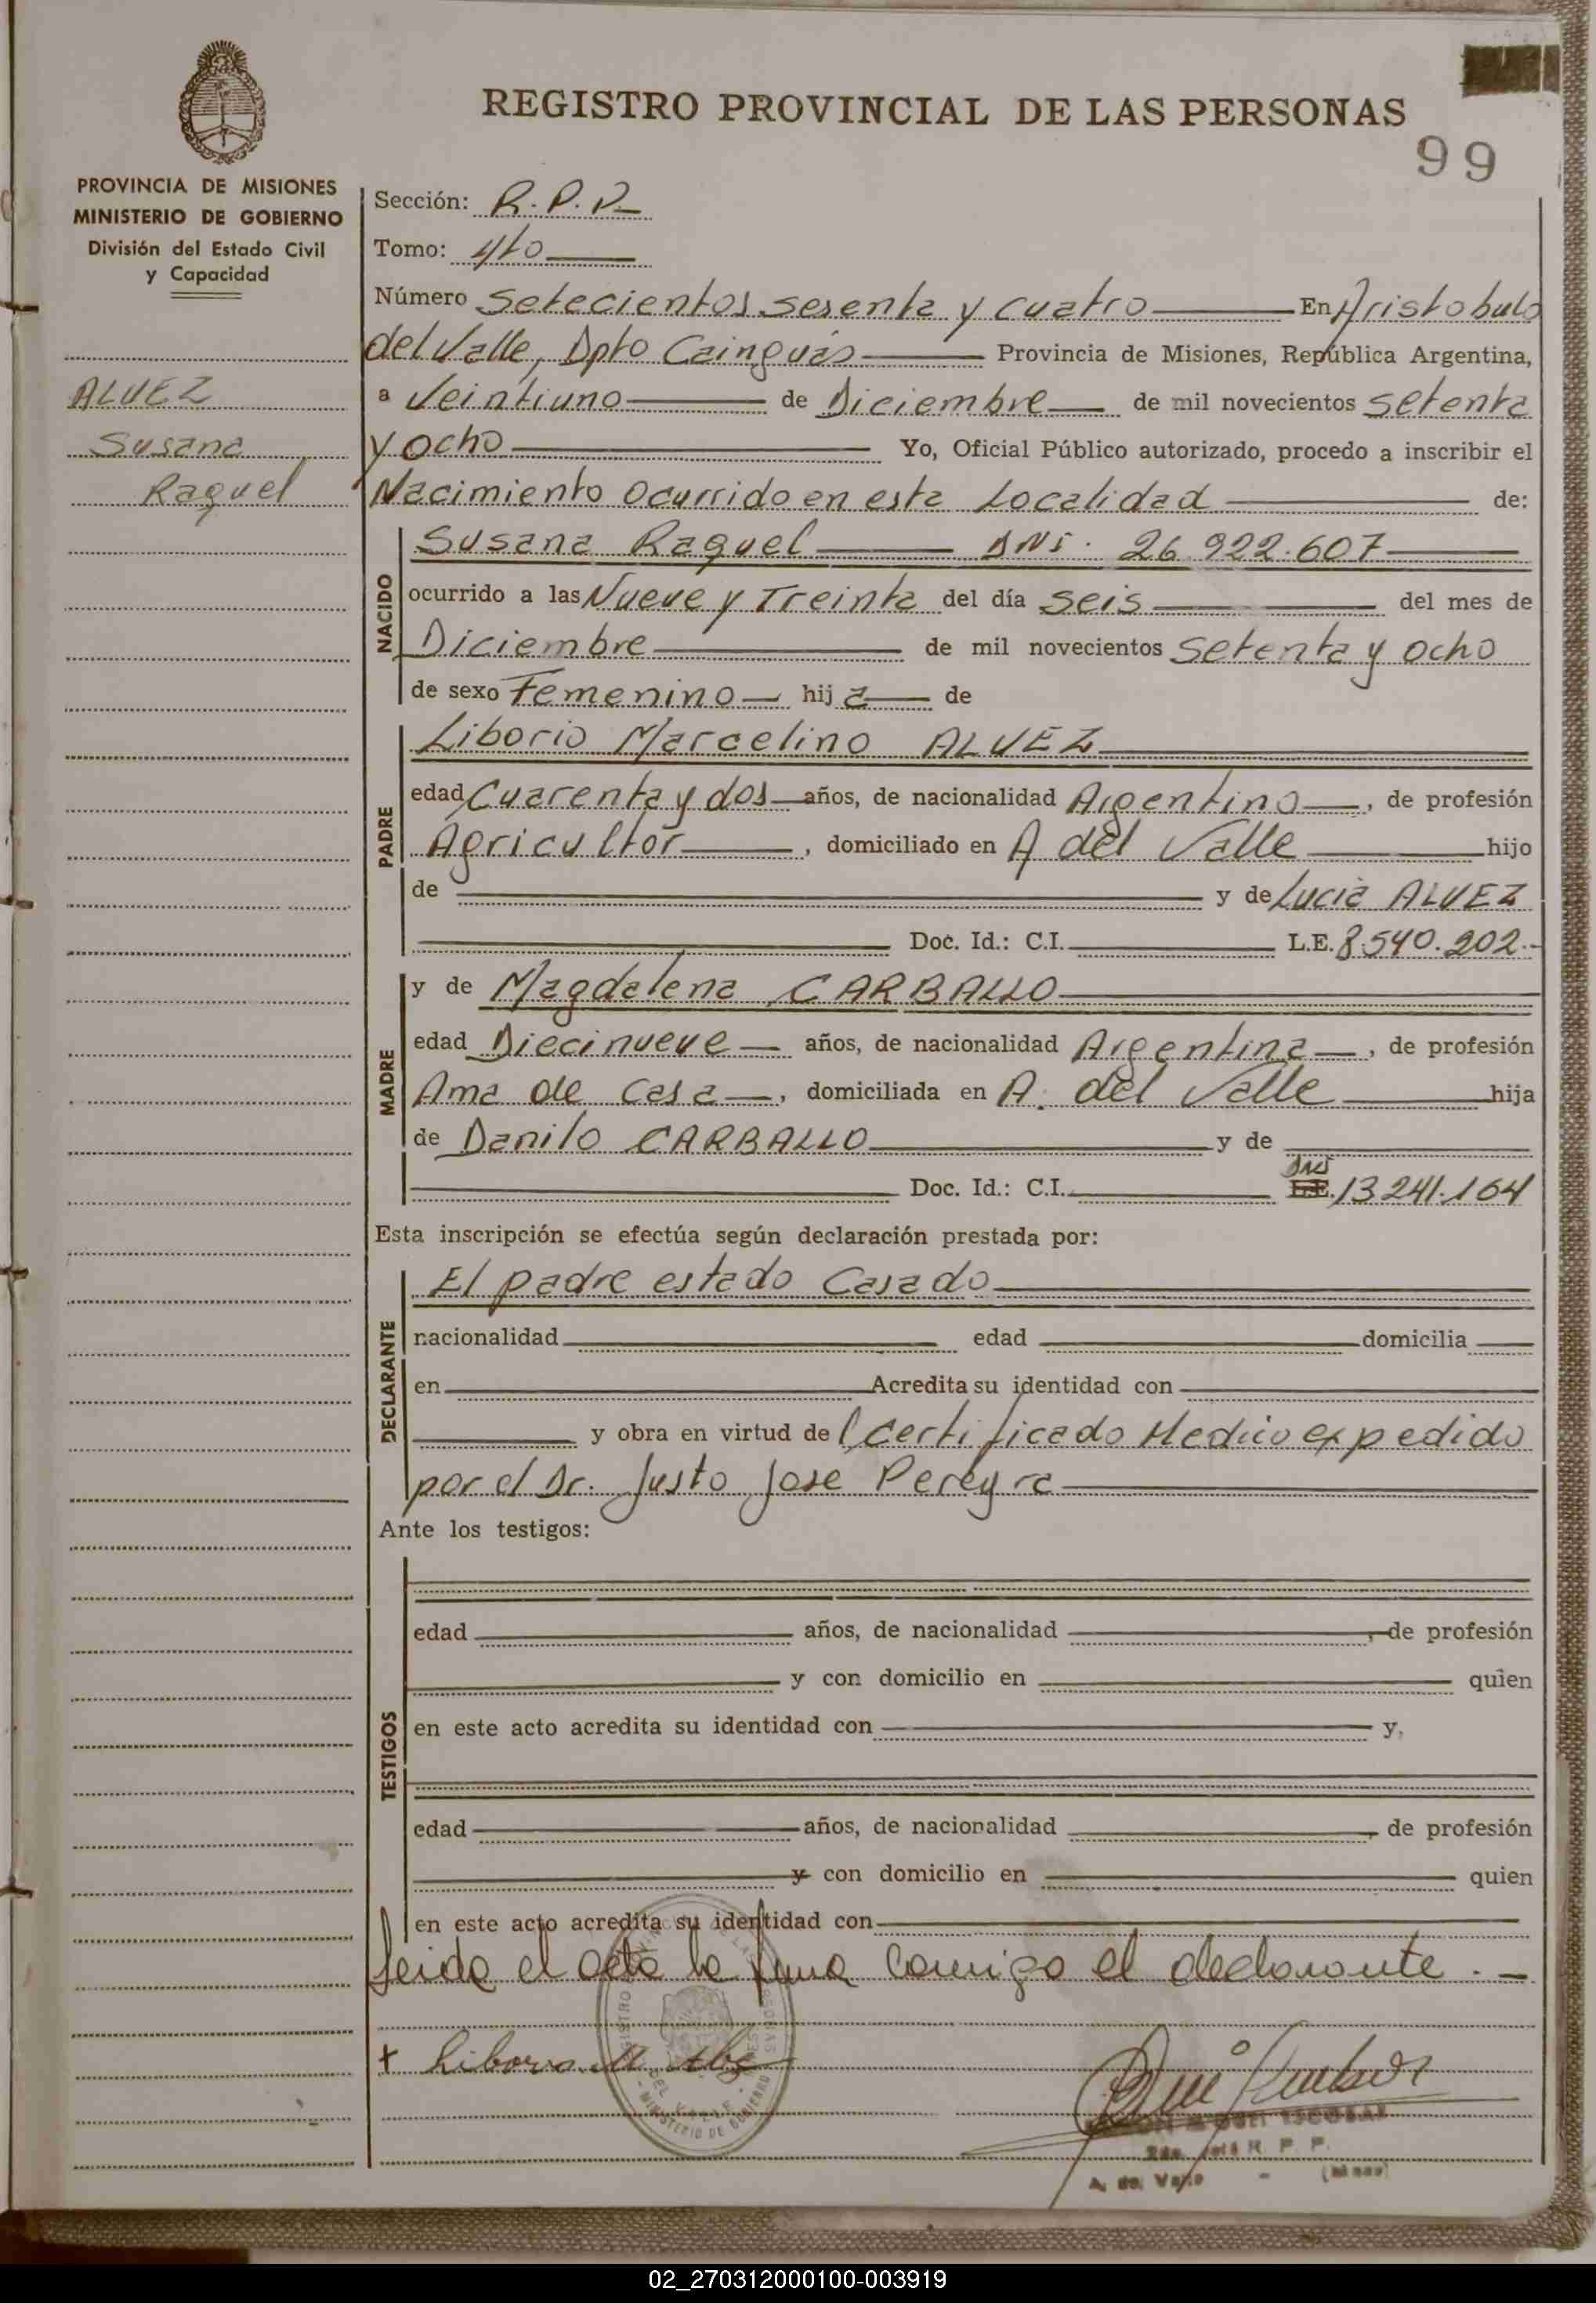 REGISTRO PROVINCIAL DE LAS PERSONAS
99
PROVINCIA DE MISIONES
MINISTERIO DE GOBIERNO
División del Estado Civil
y Capacidad
ALVEZ
Susana
Raquel
Sección: R.P.P.
Tomo: 4to
Número Setecientos sesenta y cuatro En Aristobulo
del Valle, Dpto Cainguás Provincia de Misiones, República Argentina,
a Veintiuno de Diciembre de mil novecientos setenta
y ocho Yo, Oficial Público autorizado, procedo a inscribir el
Nacimiento ocurrido en esta Localidad de:
NACIDO
Susana Raquel DNI. 26.922.607
ocurrido a las Nueve y Treinta del día seis del mes de
Diciembre de mil novecientos setenta y ocho
de sexo Femenino hija de
PADRE
Liborio Marcelino ALVEZ
edad Cuarenta y dos años, de nacionalidad Argentino, de profesión
Agricultor, domiciliado en A del Valle hijo
de y de Lucia ALVEZ
Doc. Id.: C.I. L.E. 8.540.202.-
MADRE
y de Magdalena CARBALLO
edad Diecinueve años, de nacionalidad Argentina, de profesión
Ama de casa, domiciliada en A. del Valle hija
de Danilo CARBALLO y de
Doc. Id.: C.I. DNI L.E. 13.241.164
Esta inscripción se efectúa según declaración prestada por:
DECLARANTE
El padre estado Casado
nacionalidad edad domicilia
en Acredita su identidad con
y obra en virtud del Certificado Medico expedido
por el Dr. Justo Jose Pereyra
Ante los testigos:
TESTIGOS
edad años, de nacionalidad , de profesión
y con domicilio en quien
en este acto acredita su identidad con y,
edad años, de nacionalidad , de profesión
y con domicilio en quien
en este acto acredita su identidad con
Leida el acta la firma conmigo el declarante.-
+ Liborio M. Alvez
ESCOBAR
R. P. P.
A. del Valle (Mnes)
02_270312000100-003919